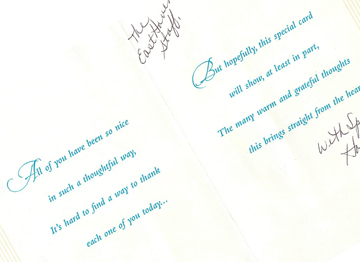 The
Staff,
All of you have been so nice
in such a thoughtful way,
It's hard to find a way to thank
each one of you today...
But hopefully, this special card
will show, at least in part,
The many warm and grateful thoughts
this brings straight from the
With